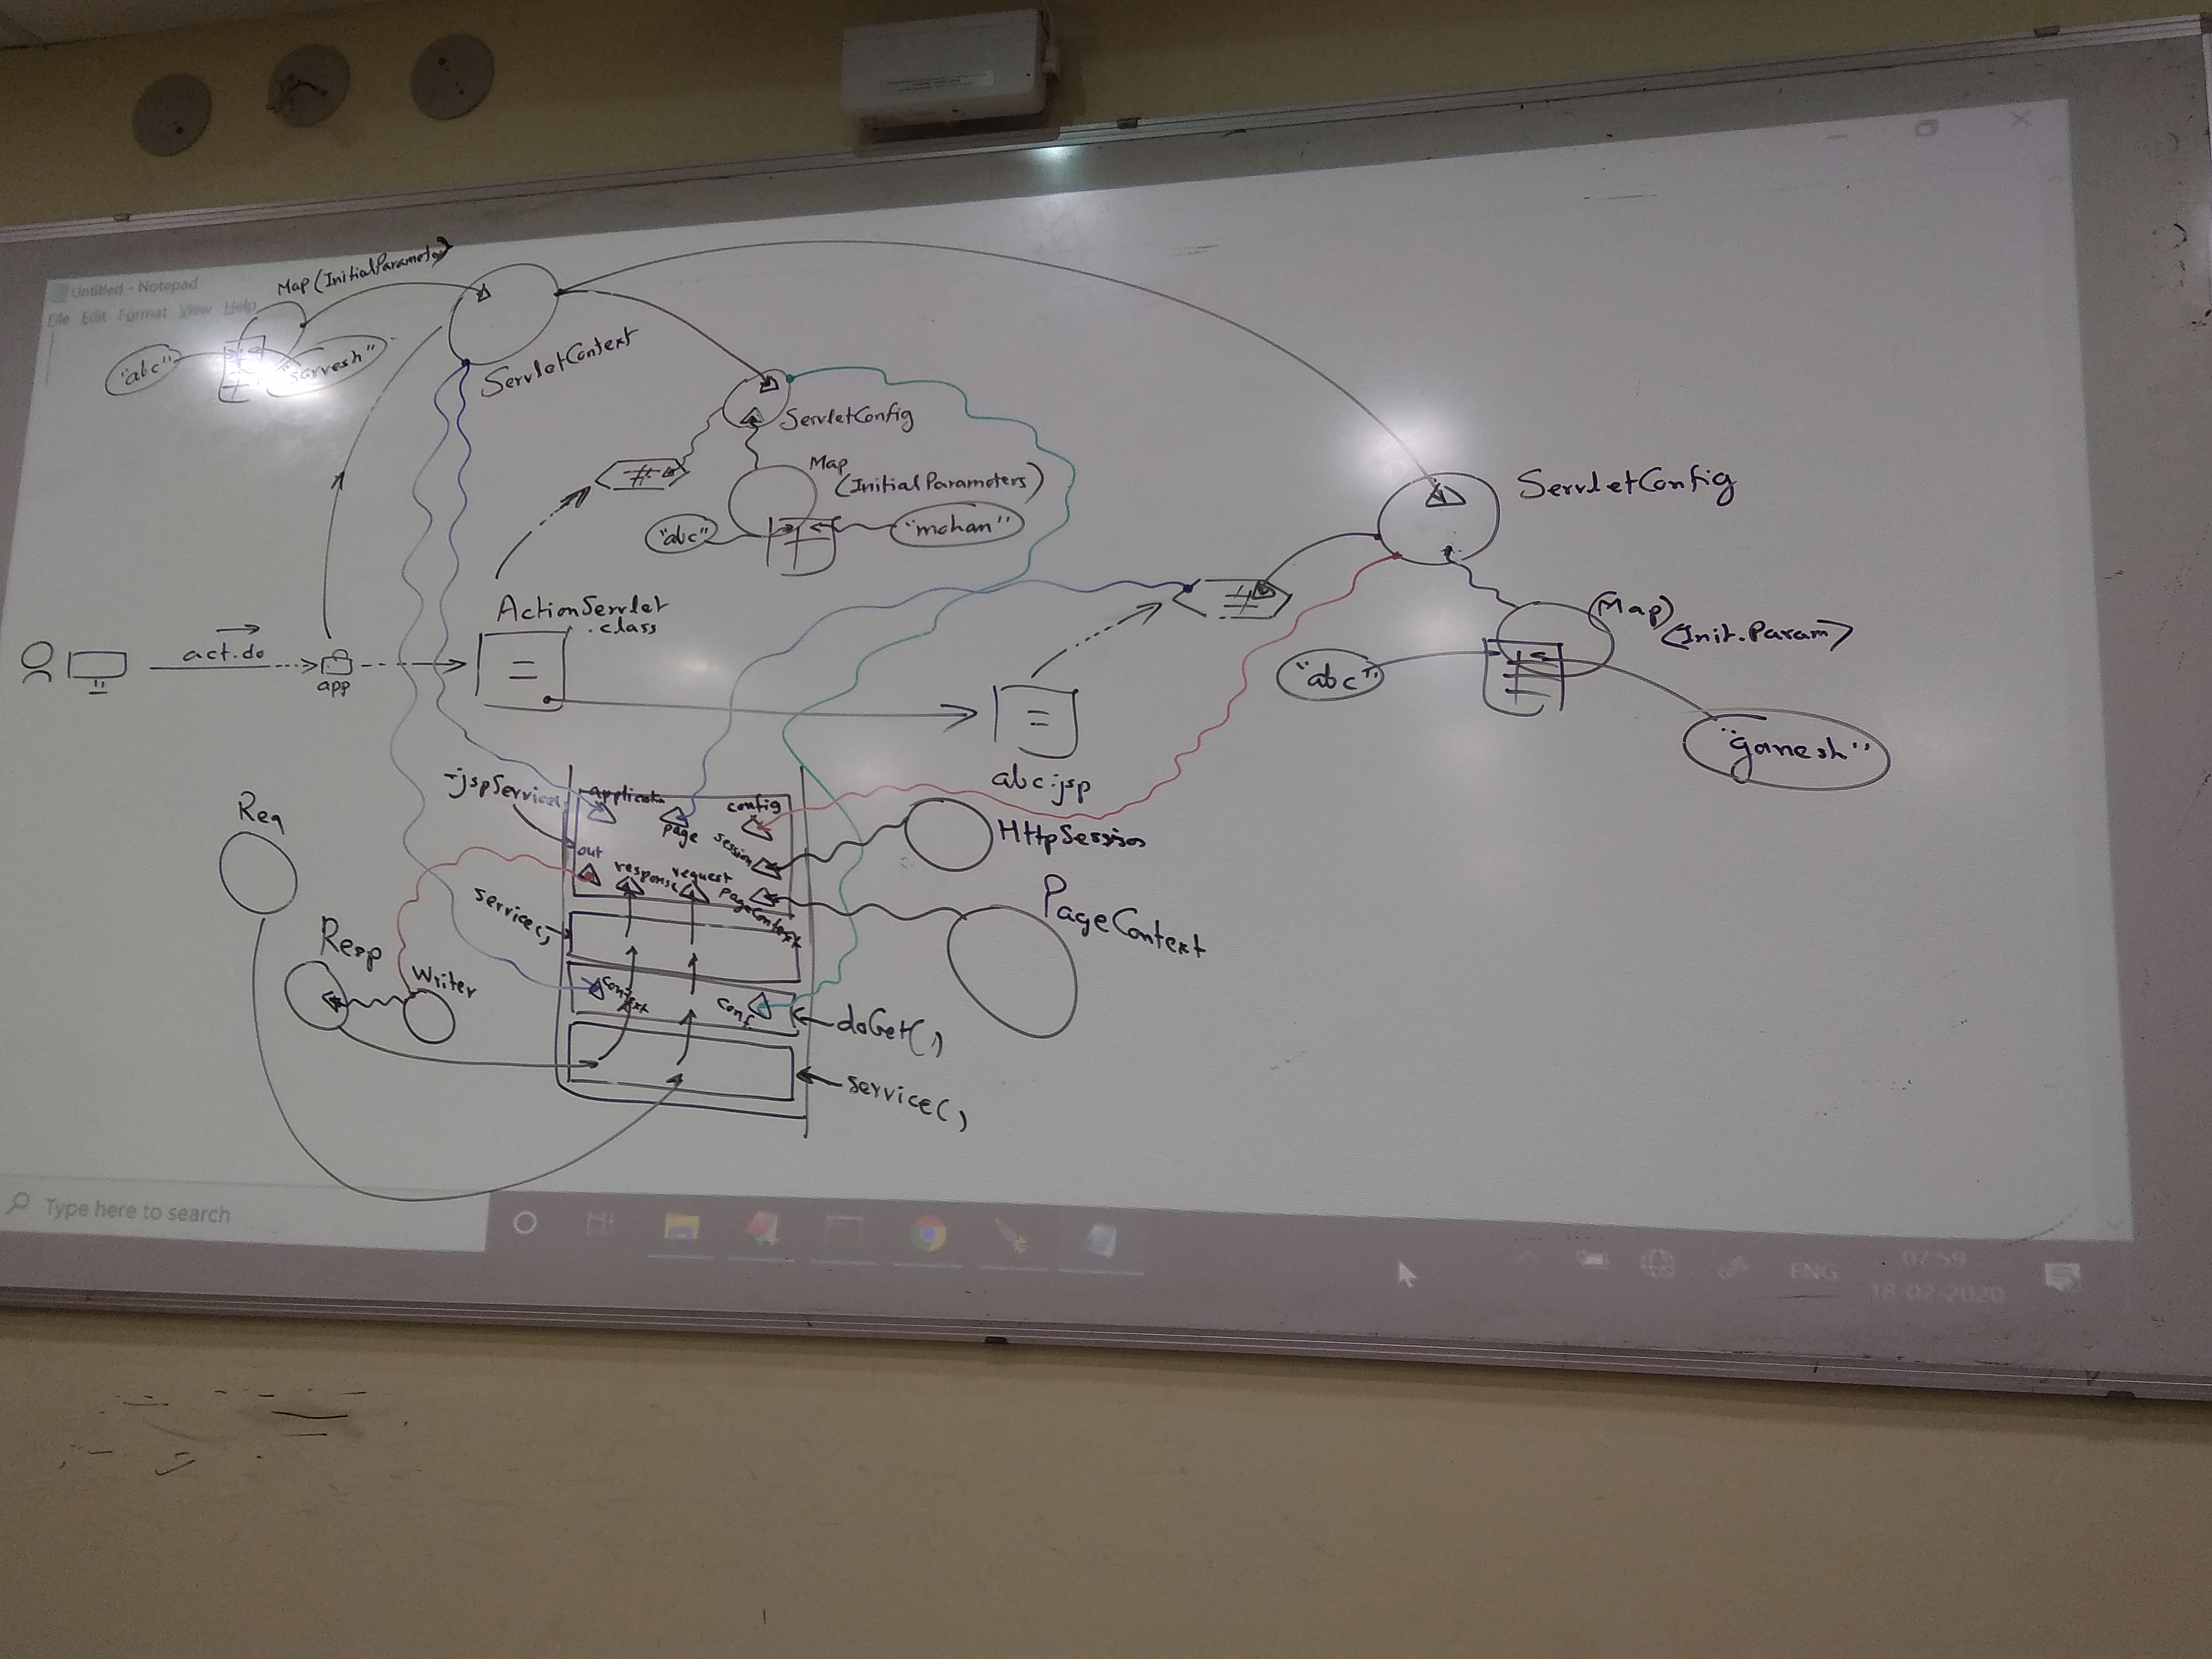 Untitled - Notepad
File Edit Format View Help
Map (InitialParameter)
"abc"
"sarvesh"
ServletContext
ServletConfig
Map
(InitialParameters)
"abc"
"mohan"
ServletConfig
(Map)
(Init.Param)
"abc"
"ganesh"
ActionServlet
.class
act.do
app
abc.jsp
-jspService(,
application
page
config
session
out
response
request
pageContext
HttpSession
PageContext
Req
Resp
Writer
service(,)
context
conf
doGet(,)
service(,)
Type here to search
ENG
07:59
18-02-2020